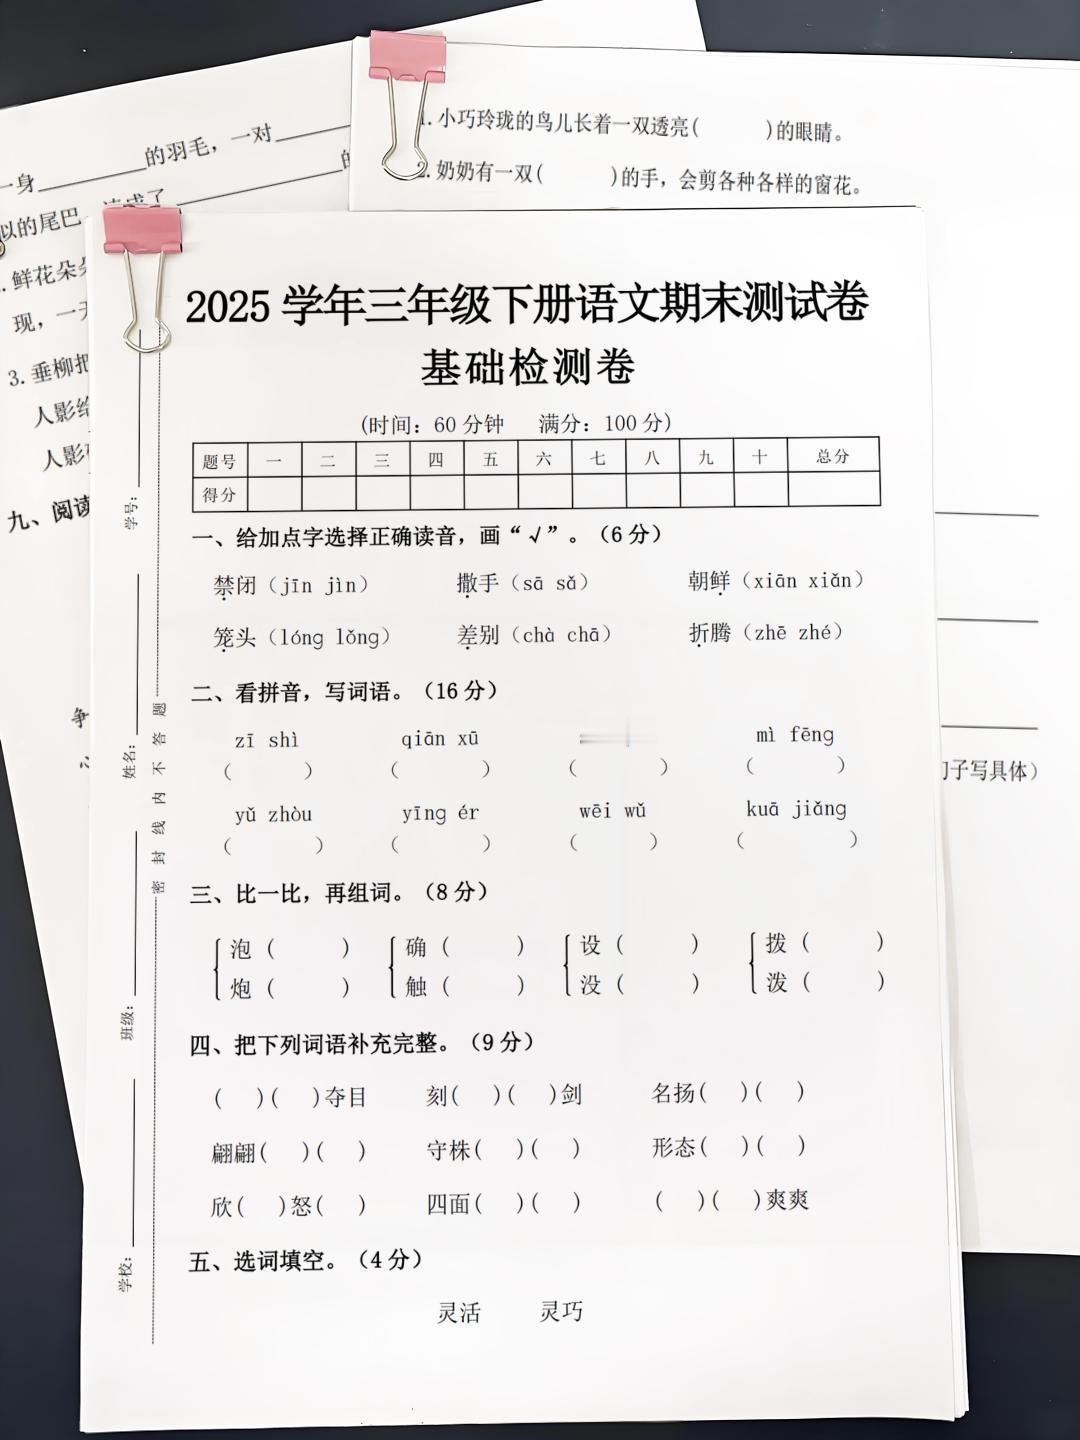 一身________的羽毛，一对
的
似的尾巴
鲜花朵朵
现，一
3.垂柳把
人影
人影
九、阅读
1.小巧玲珑的鸟儿长着一双透亮(    )的眼睛。
2.奶奶有一双(    )的手，会剪各种各样的窗花。
2025学年三年级下册语文期末测试卷
基础检测卷
(时间：60分钟 满分：100分)
题号 一 二 三 四 五 六 七 八 九 十 总分
得分
一、给加点字选择正确读音，画“√”。（6分）
禁闭（jīn jìn） 撒手（sā sǎ） 朝鲜（xiān xiǎn）
笼头（lóng lǒng） 差别（chà chā） 折腾（zhē zhé）
二、看拼音，写词语。（16分）
zī shì qiān xū mì fēng
（    ） （    ） （    ） （    ）
yǔ zhòu yīng ér wēi wǔ kuā jiǎng
（    ） （    ） （    ） （    ）
三、比一比，再组词。（8分）
泡（    ） 确（    ） 设（    ） 拨（    ）
炮（    ） 触（    ） 没（    ） 泼（    ）
四、把下列词语补充完整。（9分）
(  )(  )夺目 刻(  )(  )剑 名扬(  )(  )
翩翩(  )(  ) 守株(  )(  ) 形态(  )(  )
欣(  )怒(  ) 四面(  )(  ) (  )(  )爽爽
五、选词填空。（4分）
灵活 灵巧
学号：
姓名：
班级：
学校：
密封线内不答题
子写具体）